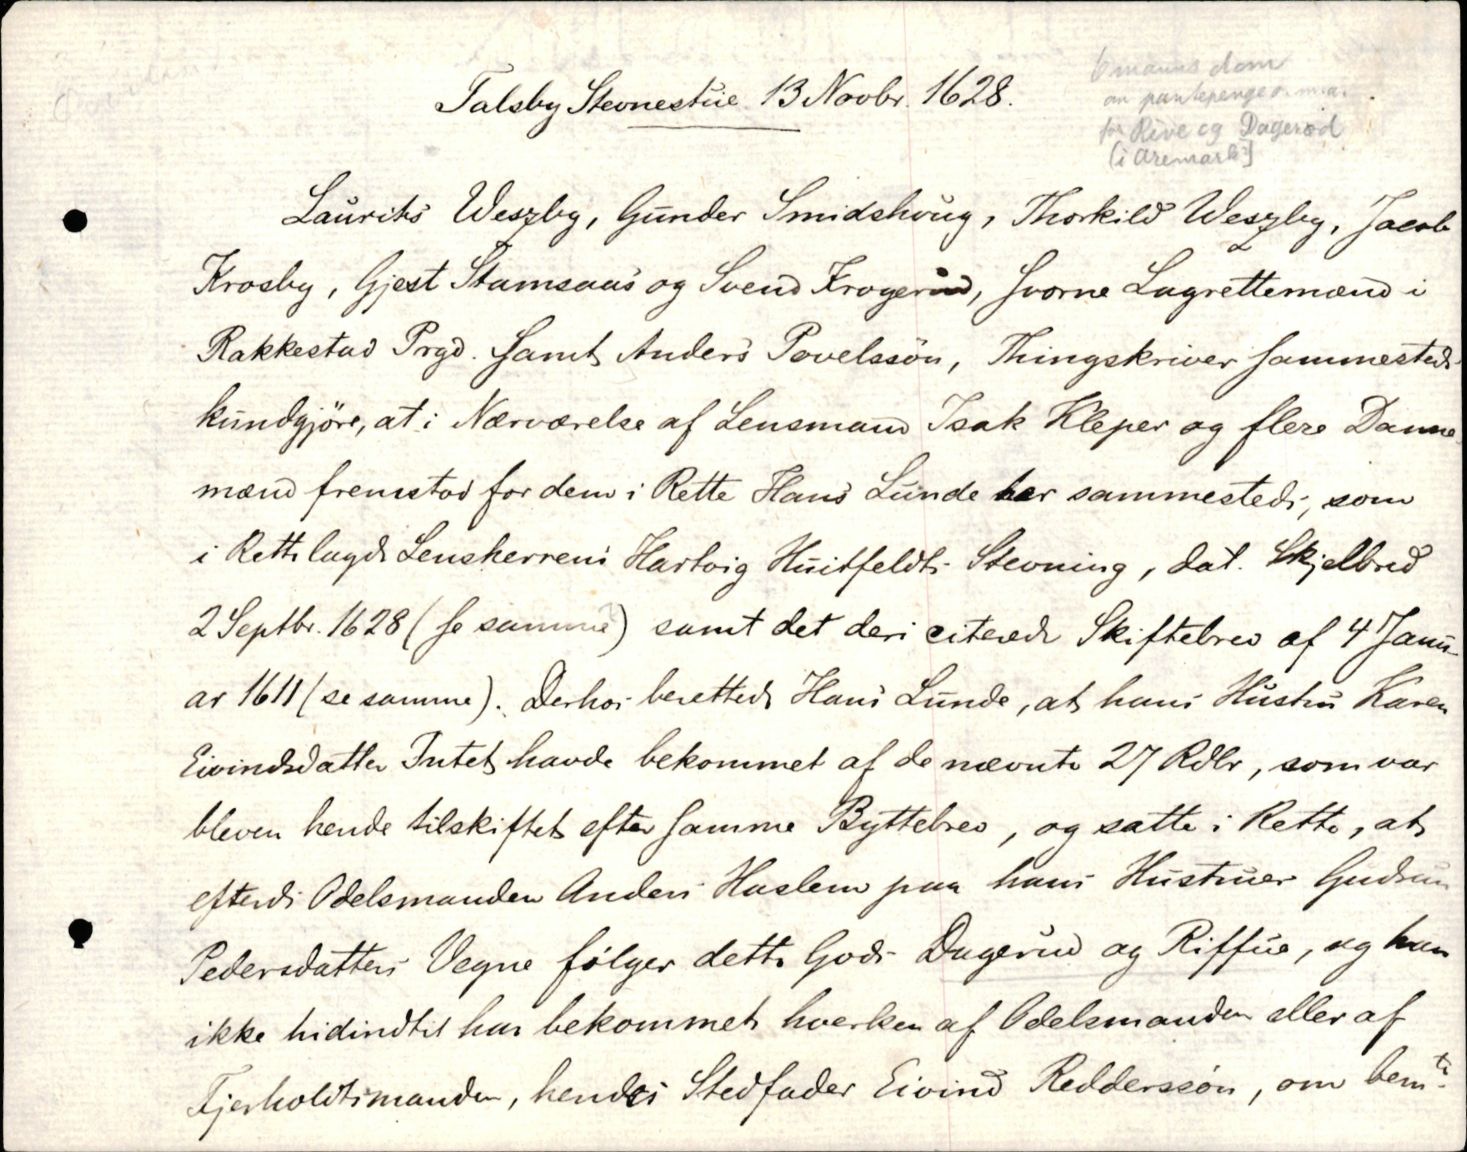 Talsby Stevnestue 13 Novbr. 1628.
6 manns dom
om pantepenge o. m. a.
for Rive og Dagerød
(i Aremark)
Laurits Weszby, Gunder Smidshoug, Thorkild Weszby, Jacob
Krosby, Gjest Stamsaas og Svend Krogerud, svorne Lagrettemænd i
Rakkestad Prgd. samt Anders Povelssön, Thingskriver sammesteds
kundgjöre, at i Nærværelse af Lensmand Isak Kleper og flere Danne
mænd fremstod for dem i Rette Hans Lunde her sammesteds, som
i Rette lagde Lensherrens Hartvig Huitfeldts Stevning, dat. Skjelbred
2 Septbr. 1628 (se samme) samt det deri citerede Skiftebrev af 4 Janu-
ar 1611 (se samme). Derhos berettede Hans Lunde, at hans Hustru Karen
Eivindsdatter Intet havde bekommet af de nævnte 27 Rdlr, som var
bleven hende tilskiftet efter samme Byttebrev, og satte i Rette, at
efterdi Odelsmanden Anders Haslem paa hans Hustrues Gudrun
Pedersdatters Vegne fölger dette Gods Dagerud og Riffue, og han
ikke hidindtil har bekommet hverken af Odelsmanden eller af
Fjerholdtsmanden, hendes Stedfader Eivind Reddersson, om bemte